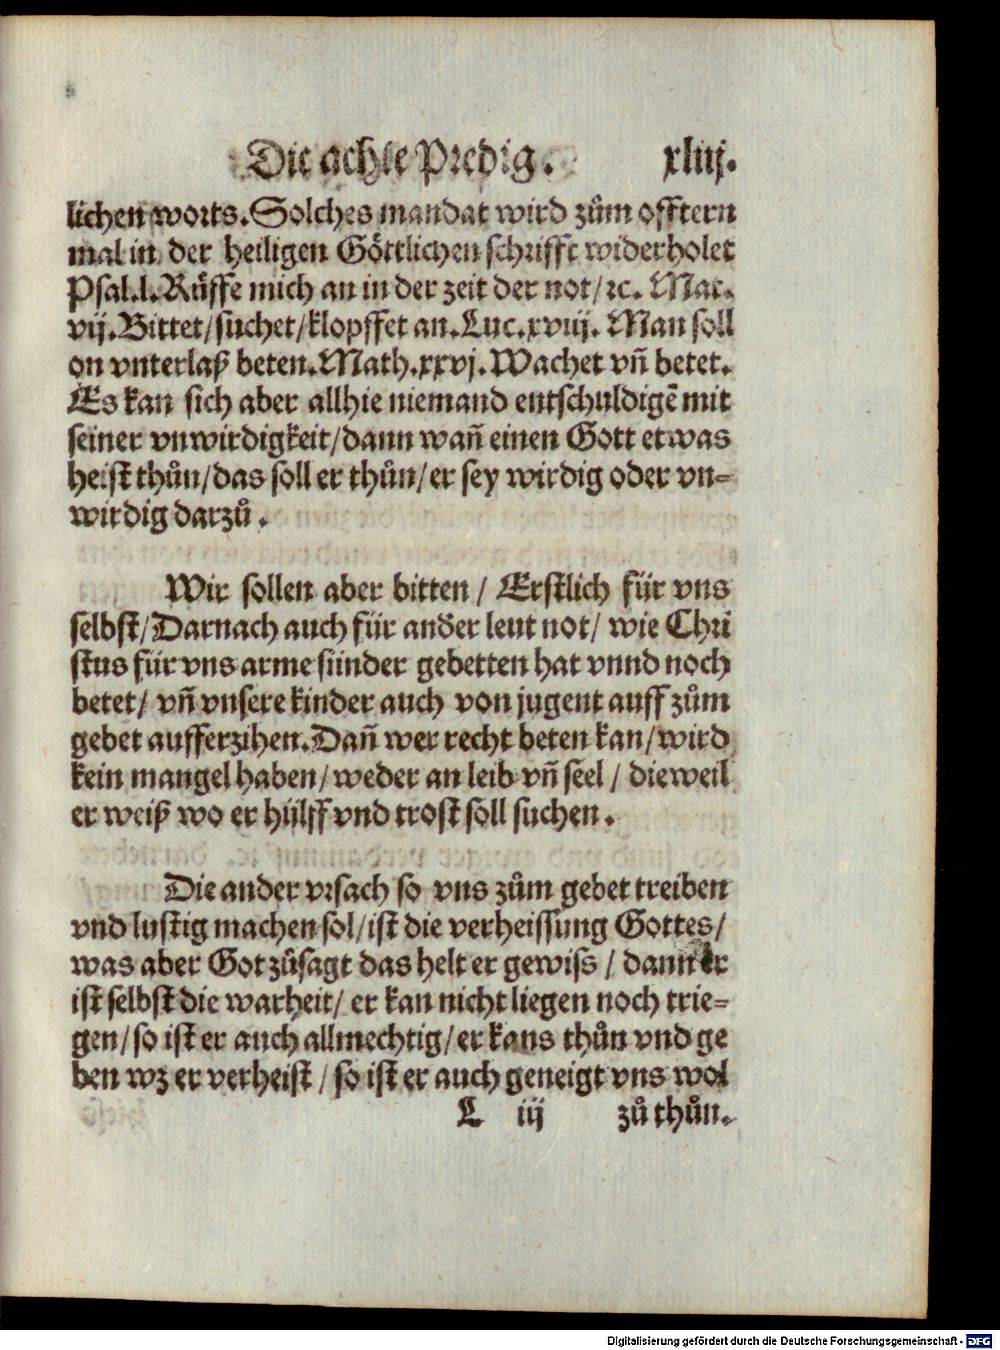 Die achte Predig. xliij.
lichen worts. Solches mandat wird zům offtern
mal in der heiligen Göttlichen schrifft widerholet
Psal.l. Rüffe mich an in der zeit der not/ ꝛc. Mat.
vij. Bittet/ suchet/ klopffet an. Luc.xviij. Man soll
on vnterlaß beten. Math.xxvj. Wachet vñ betet.
Es kan sich aber allhie niemand entschuldigẽ mit
seiner vnwirdigkeit/ dann wañ einen Gott etwas
heist thůn/ das soll er thůn/ er sey wirdig oder vn-
wirdig darzů.
Wir sollen aber bitten / Erstlich für vns
selbst/ Darnach auch für anđer leut not/ wie Chri
stus für vns arme sünder gebetten hat vnnd noch
betet/ vñ vnsere kinder auch von jugent auff zům
gebet aufferzihen. Dañ wer recht beten kan/ wird
kein mangel haben/ weder an leib vñ seel / dieweil
er weiß wo er hülff vnd trost soll suchen.
Die ander vrsach so vns zům gebet treiben
vnd lustig machen sol/ ist die verheissung Gottes/
was aber Got zůsagt das helt er gewiss / dann er
ist selbst die warheit/ er kan nicht liegen noch trie-
gen/ so ist er auch allmechtig/ er kans thůn vnd ge
ben wz er verheist / so ist er auch geneigt vns wol
L iij zů thůn.
Digitalisierung gefördert durch die Deutsche Forschungsgemeinschaft - DFG